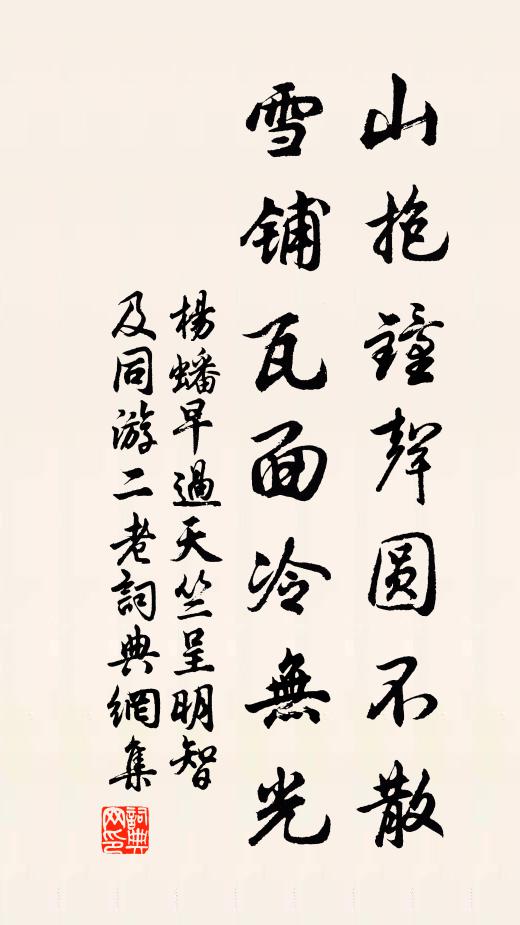 山抱鐘聲圓不散
雪鋪瓦面冷無光
楊蟠早過天竺呈明智
及同游二老詞典網集
詞典網印